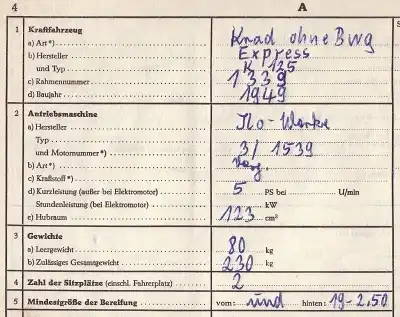 4 A
1 Kraftfahrzeug
a) Art*) Krad ohne Bwg
b) Hersteller Express
und Typ K 125
c) Rahmennummer 1339
d) Baujahr 1949
2 Antriebsmaschine
a) Hersteller Ilo-Werke
Typ
und Motornummer*) 3/ 1539
b) Art*) Verg.
c) Kraftstoff*)
d) Kurzleistung (außer bei Elektromotor) 5 PS bei U/min
Stundenleistung (bei Elektromotor) kW
e) Hubraum 123 cm³
3 Gewichte
a) Leergewicht 80 kg
b) Zulässiges Gesamtgewicht 230 kg
4 Zahl der Sitzplätze (einschl. Fahrerplatz) 2
5 Mindestgröße der Bereifung vom: und hinten: 19-2.50